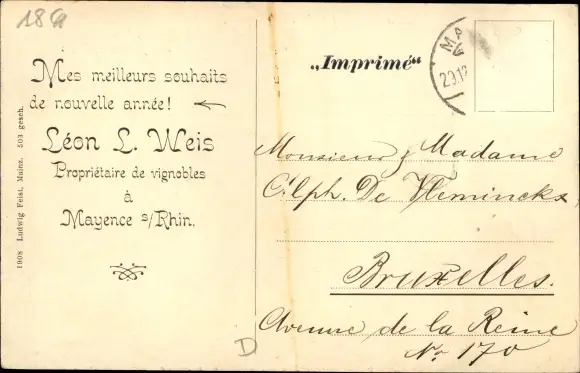 Mes meilleurs souhaits
de nouvelle année!
Léon L. Weis
Propriétaire de vignobles
à
Mayence s/Rhin.
1908 Ludwig Feist, Mainz. 503 gesch.
„Imprimé“
Monsieur & Madame
Alph. De Vleminckx
Bruxelles.
Avenue de la Reine
No 170
D